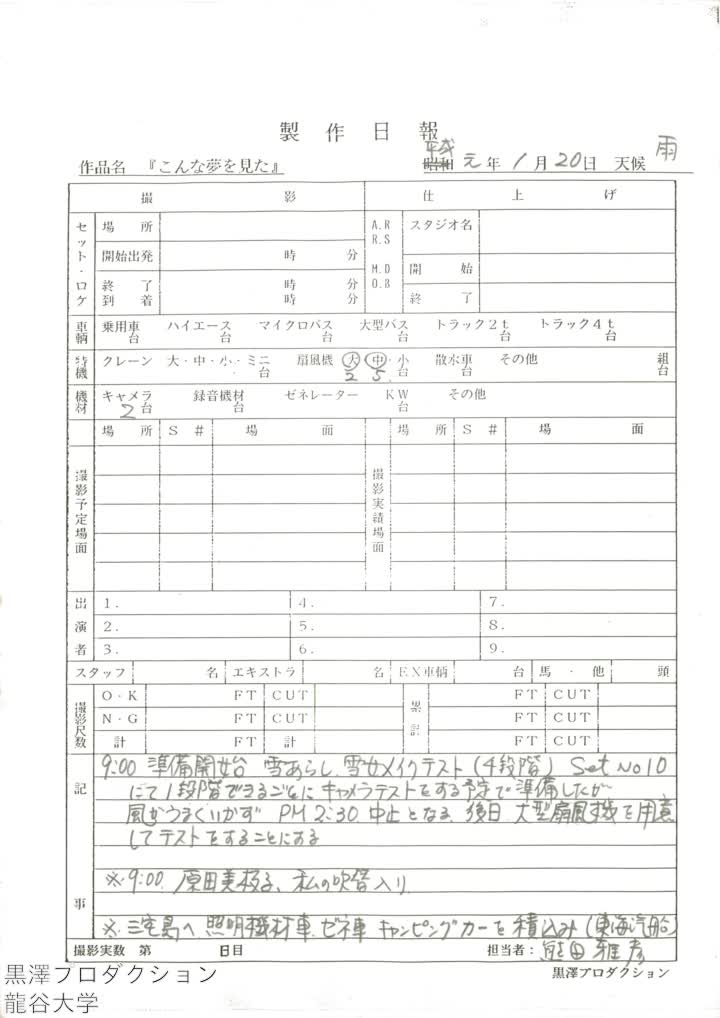 製作日報
作品名 『こんな夢を見た』 昭和 平成 元年 1月20日 天候 雨
撮影 仕上げ
セット・ロケ 場所 A.R R.S スタジオ名
開始出発 時 分
M.D O.B 開始
終了 時 分
到着 時 分 終了
車輌 乗用車 台 ハイエース 台 マイクロバス 台 大型バス 台 トラック2t 台 トラック4t 台
特機 クレーン 大・中・小・ミニ 台 扇風機 大 2 中 5 小 台 散水車 台 その他 組 台
機材 キャメラ 2台 録音機材 台 ゼネレーター KW 台 その他
場所 S# 場面 場所 S# 場面
撮影予定場面 撮影実績場面
出演者 1. 4. 7.
2. 5. 8.
3. 6. 9.
スタッフ 名 エキストラ 名 EX車輌 台 馬・他 頭
撮影尺数 O・K FT CUT 累計 FT CUT
N・G FT CUT FT CUT
計 FT 計 FT CUT
記事
9:00 準備開始 雪あらし、雪女メイクテスト(4段階) Set No10
にて1段階できるごとにキャメラテストをする予定で準備したが
風がうまくいかず PM2:30 中止となる、後日 大型扇風機を用意
してテストをすることにする
※9:00 原田美枝子、私の吹替入り
※三宅島へ 照明機材車、ゼネ車 キャンピングカーを積込み(東海汽船)
撮影実数 第 日目 担当者: 熊田雅彦
黒澤プロダクション
黒澤プロダクション
龍谷大学